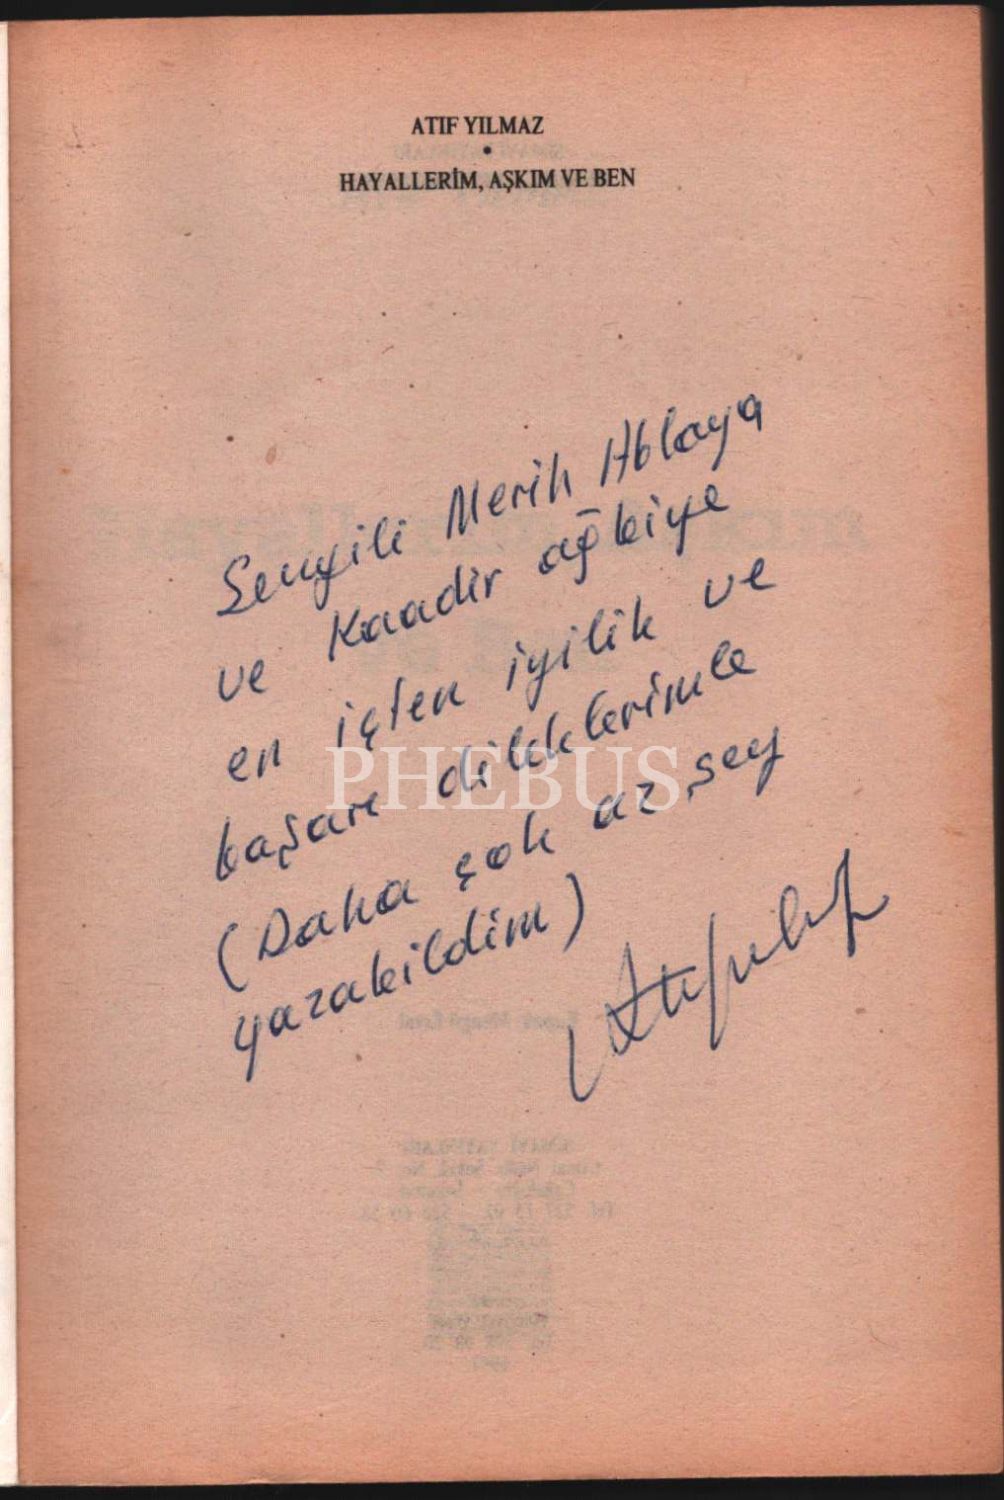 ATIF YILMAZ
•
HAYALLERİM, AŞKIM VE BEN
Sevgili Merih Ablaya
ve Kaadir ağbiye
en içten iyilik ve
başarı dileklerimle
PHEBUS
(Daha çok az şey
yazabildim)